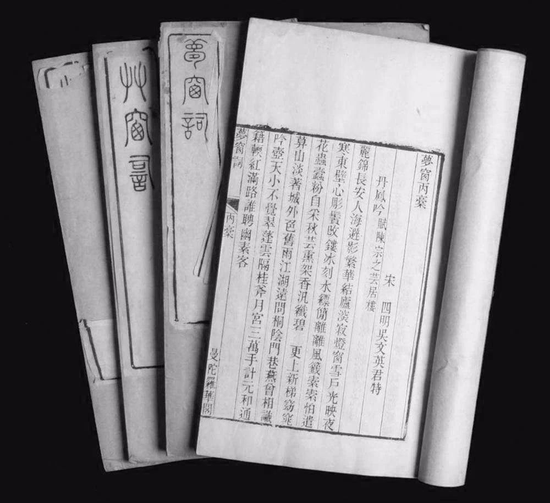 夢窗丙稾
宋 四明吳文英君特
丹鳳吟 賦陳宗之芸居樓
麗錦長安人海避影繁華結廬淡寂燈窗雪戶光映夜
寒東壁心彫鬢改鏤冰刻水縹簡離離風籤索索怕遺
花蟲蠹粉自采秋芸熏架香汎纖碧 更上新梯窈窕
暮山淡著城外色舊雨江湖遠問桐陰門巷燕曾相識
吟壺天小不覺翠蓬雲隔桂斧月宮三萬手計元和通
籍輭紅滿路誰聘幽素客
夢窗詞 丙稾 曼陀羅華閣
夢窗詞
艸窗䛐